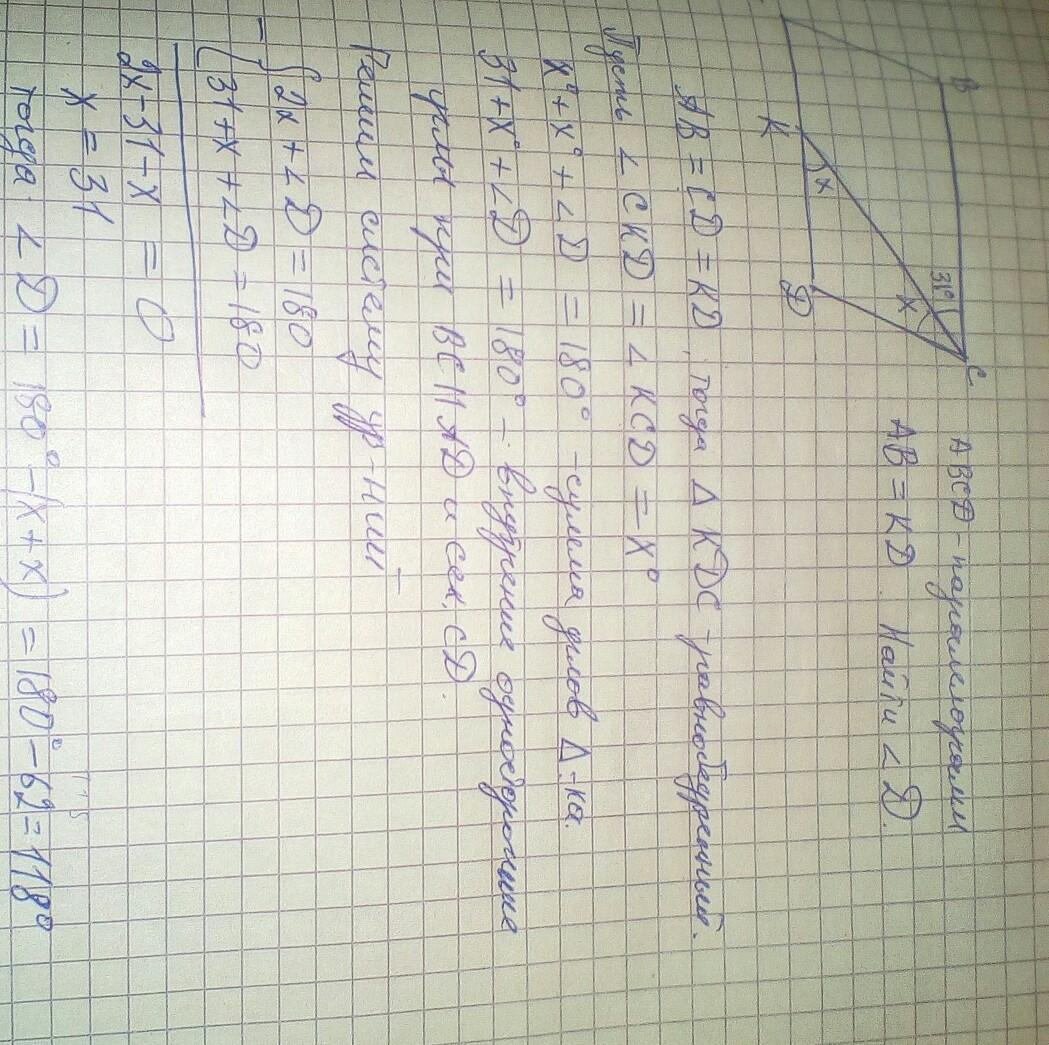 B
C
31°
x
x
K
D
ABCD - параллелограмм
AB = KD. Найти ∠D.
AB = CD = KD, тогда Δ KDC - равнобедренный.
Пусть ∠CKD = ∠KCD = x°
x° + x° + ∠D = 180° - сумма углов Δ-ка.
31 + x° + ∠D = 180° - внутренние односторонние
углы при BC || AD и сек. CD.
Решим систему ур-ний
- { 2x + ∠D = 180
31 + x + ∠D = 180
2x - 31 - x = 0
x = 31
тогда ∠D = 180° - (x + x) = 180° - 62 = 118°